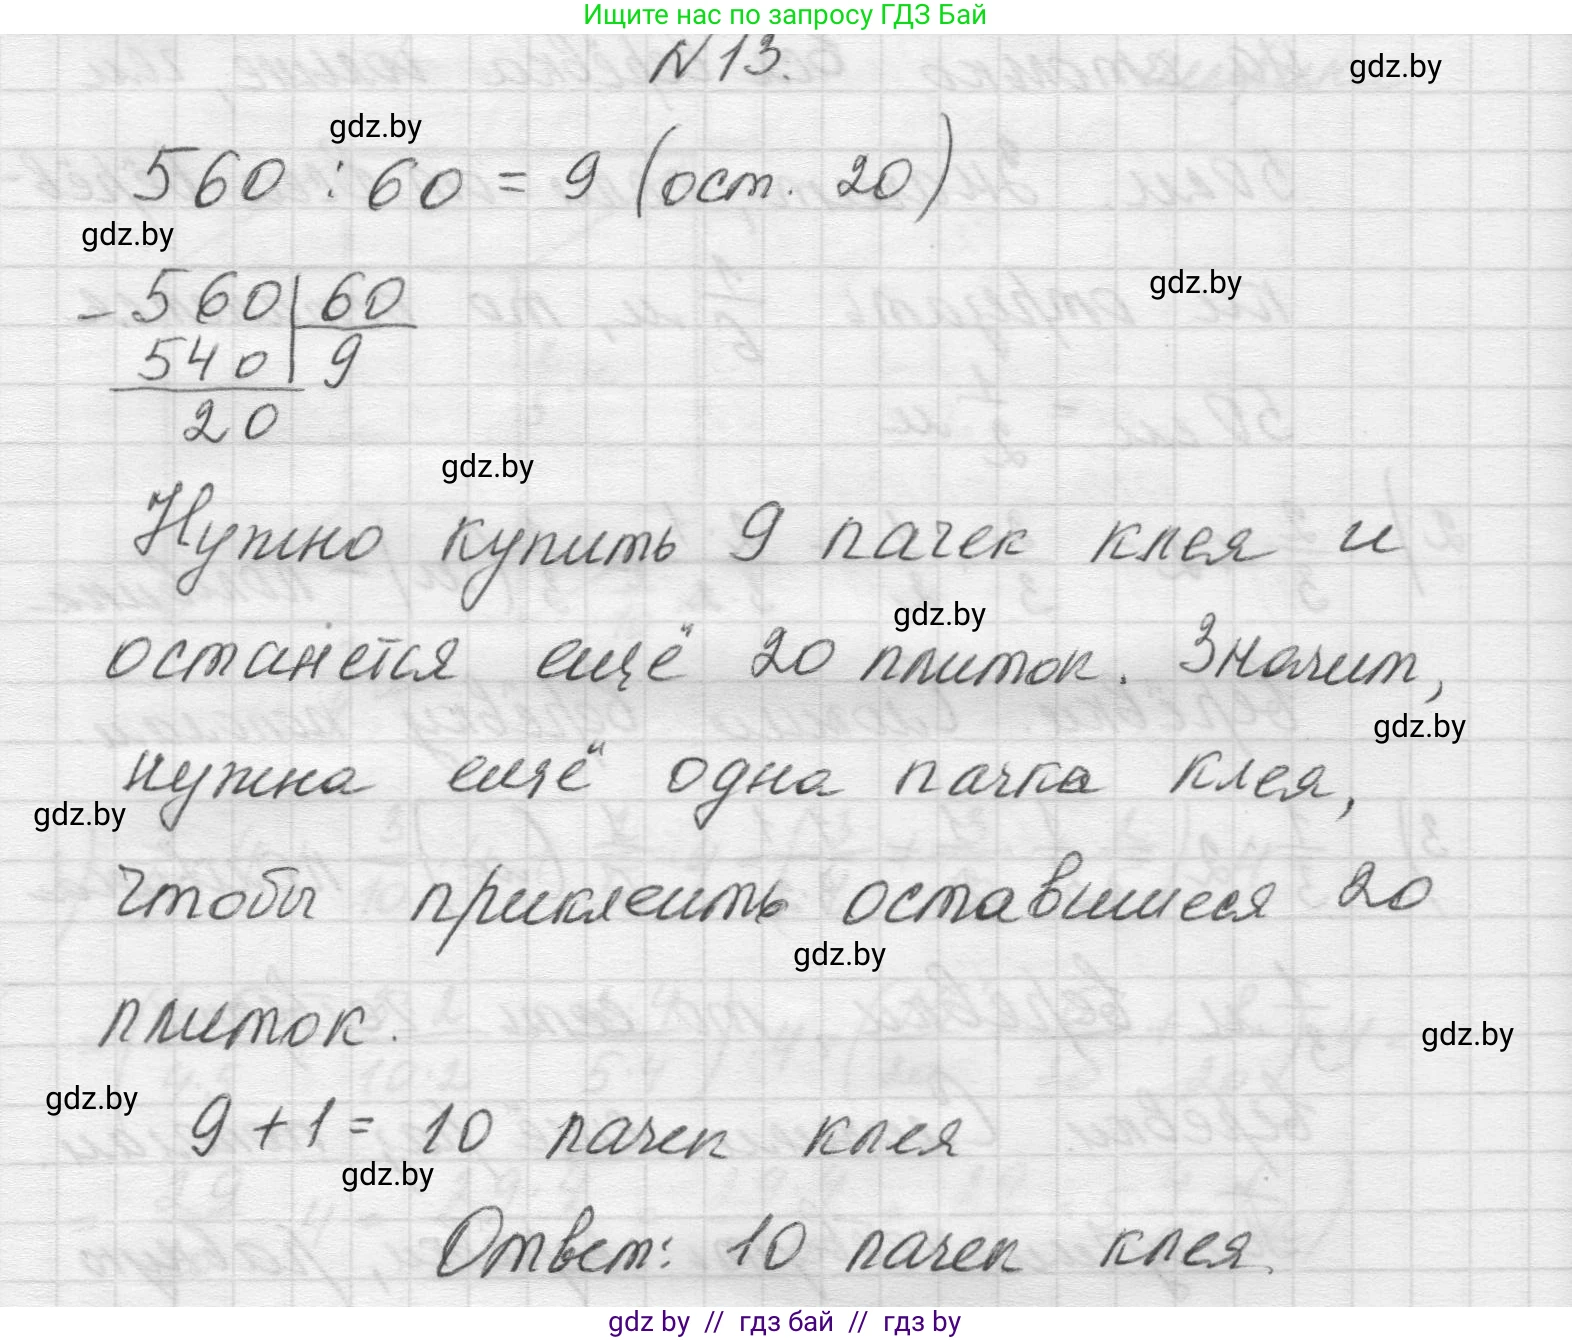 Ищите нас по запросу ГДЗ Бай
N 13.
gdz.by
gdz.by
560 : 60 = 9 (ост. 20)
gdz.by
gdz.by
- 560 | 60
540 | 9
20
gdz.by
Нужно купить 9 пачек клея и
gdz.by
останется ещё 20 плиток. Значит,
gdz.by
нужна ещё одна пачка клея,
gdz.by
чтобы приклеить оставшиеся 20
gdz.by
плиток.
gdz.by
gdz.by
9 + 1 = 10 пачек клея
gdz.by
Ответ: 10 пачек клея.
gdz by // гдз бай // гдз by